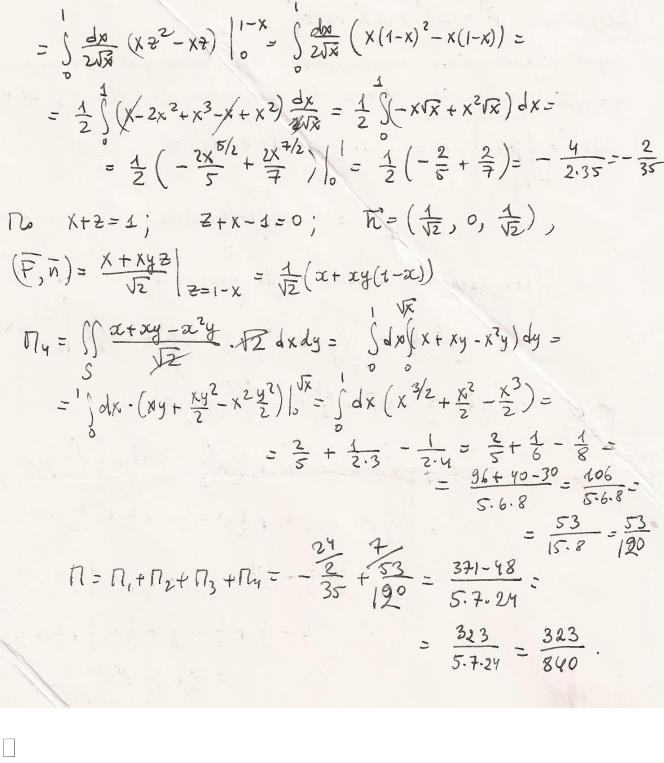 = ∫₀¹ dx/(2√x) (xz² − xz) |₀^(1−x) = ∫₀¹ dx/(2√x) (x(1−x)² − x(1−x)) =
= 1/2 ∫₀¹ (x − 2x² + x³ − x + x²) dx/(2√x) = 1/2 ∫₀¹ (−x√x + x²√x) dx =
= 1/2 (− 2x^(5/2)/5 + 2x^(7/2)/7) |₀¹ = 1/2 (−2/5 + 2/7) = − 4/(2·35) = − 2/35
По x+z=1; z+x−1=0; n⃗ = (1/√2, 0, 1/√2),
(F̅, n̅) = (x + xyz)/√2 |_(z=1−x) = 1/√2 (x + xy(1−x))
П₄ = ∬_S (x + xy − x²y)/√2 · √2 dxdy = ∫₀¹ dx ∫₀^√x (x + xy − x²y) dy =
= ∫₀¹ dx · (xy + xy²/2 − x² y²/2) |₀^√x = ∫₀¹ dx (x^(3/2) + x²/2 − x³/2) =
= 2/5 + 1/(2·3) − 1/(2·4) = 2/5 + 1/6 − 1/8 =
= (96 + 40 − 30)/(5·6·8) = 106/(5·6·8) =
= 53/(15·8) = 53/120
П = П₁ + П₂ + П₃ + П₄ = − 24/ 2/35 + 7/ 53/120 = (371 − 48)/(5·7·24) =
= 323/(5·7·24) = 323/840.